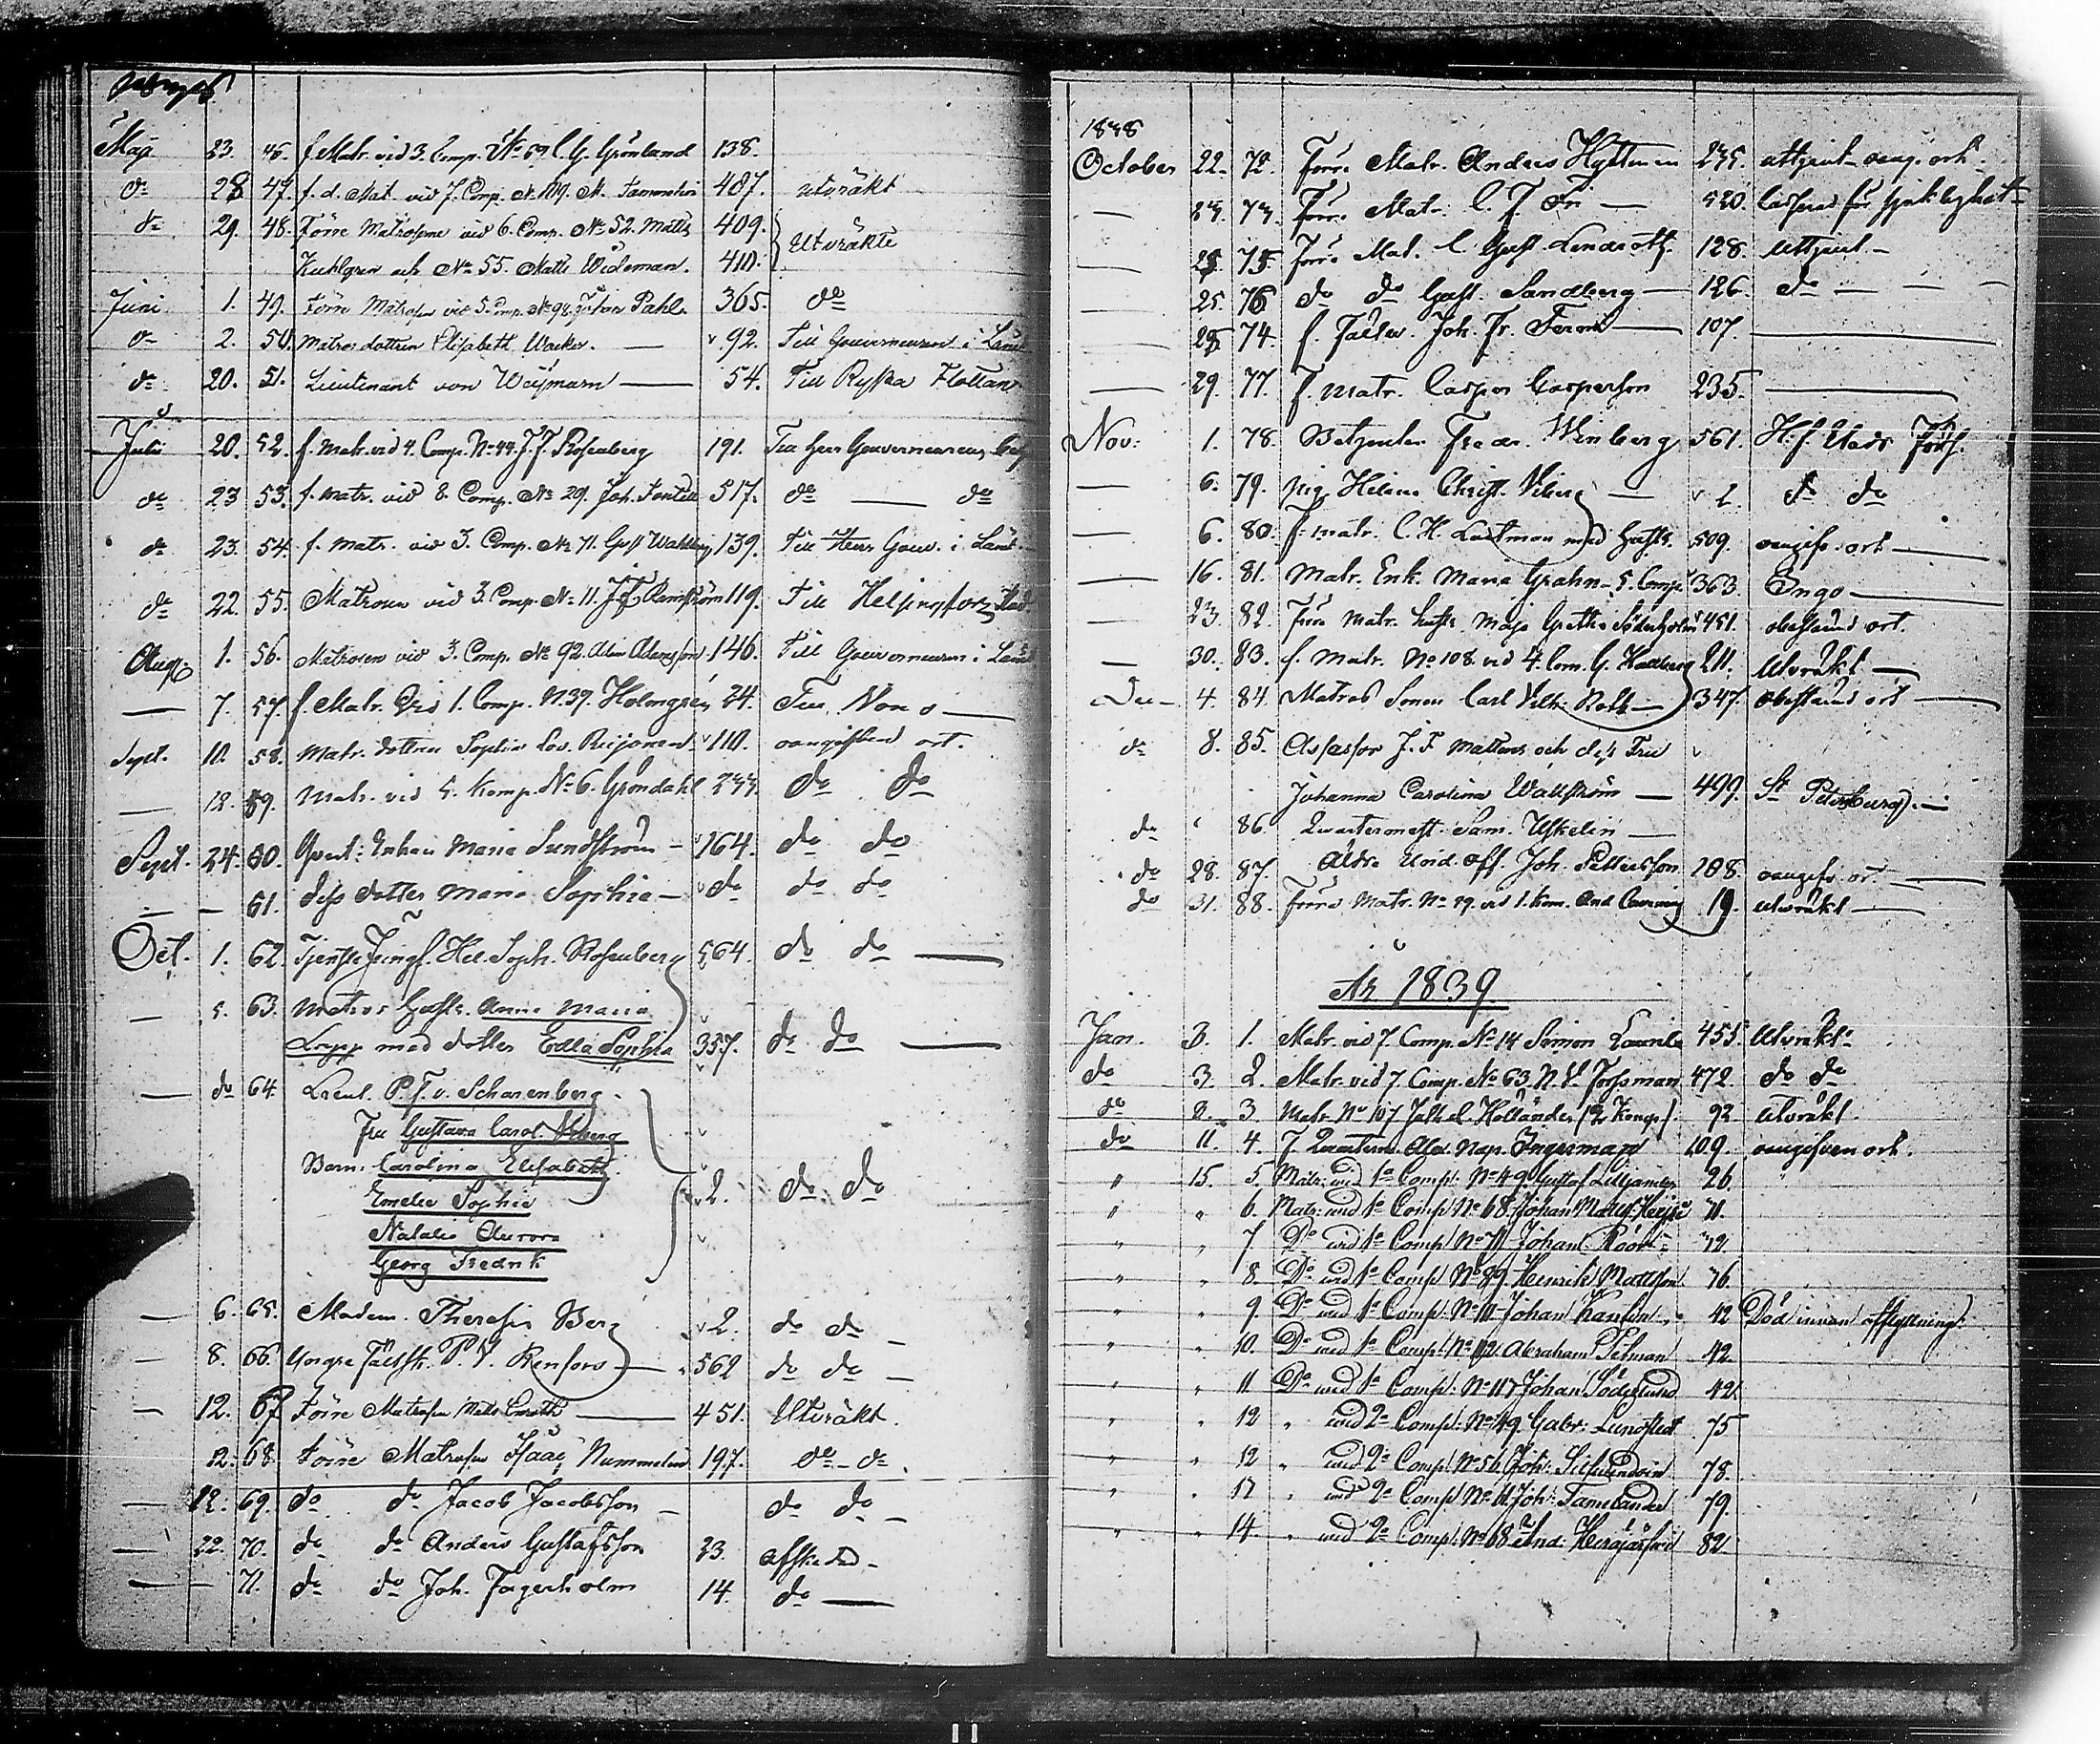 Maji 23. 46. f. Matr. vid 3. Comp. No 69 C. G. Grönland 138.
do 28 47. f. d. Mat. vid 7. Comp. N. 119. M. 407. utvräkt
do 29. 48. Förre Matroserne vid 6. Comp. No 52. Matts 409.
Kuhlgren och No 55. Matts Wideman. 410. Utvräkte
Juni 1. 49. Förre Matrosen vid 5. Comp. No 98. Johan Pahl. 365. do
do 2. 50. Matros dottren Elisabeth Wacker. — 92. Till Gouverneuren i Länet
do 20. 51. Lieutenant von Weymarn — 54. Till Ryska Flottan
Juli 20. 52. f. Matr. vid 4. Comp. No 44. J. J. Rosenberg 191. Till Herr Gouverneuren
do 23 53. f. matr. vid 8. Comp. No 29. Joh. Fontell 517. do — do
do 23. 54. f. Matr. vid 3. Comp. No 71. Gust Wahlberg 139. Till Herr Gouv. i Länet
do 22. 55. Matrosen vid 3. Comp. No 11. J. F. Ramström 119. Till Helsingfors Stad
Aug. 1. 56. Matrosen vid 3. Comp. No 92. Adam Adamsson 146. Till Gouverneuren i Länet
— 7. 57. f. Matr. Vid 1. Comp. N. 39. Holmgren 24. Till —
Sept. 10. 58. Matr. dottren Sophia Lov. Reijonen 110. oangifven ort.
— 12. 59. Matr. vid 5. Komp. No 6. Gröndahl 244. do do
Sept. 24. 60. Qvart: Enkan Maria Sundström — 164. do do
— — 61. dess dotter Maria Sophia — do do do
Oct. 1. 62. Tjenste Jungf. Hel. Soph. Rosenberg 564. do do —
— 5. 63. Matros Hustr. Anna Maria
Lopp med dotter Edla Sophia 357. do do —
— do 64. Lieut. P. F. v. Scharenberg
Fru Gustava Carol. Viberg
Barn: Carolina Elisabeth
Emelie Sophie 2. do do
Natalia Aurora
Georg Fredrik
— 6. 65. Madam. Theresia Berg 2. do do —
— 8. 66. Yngre Fältsk. P. V. Renfors — 562 do do —
— 12. 67 Förre Matrosen Matts — 451. Utvräkt.
12. 68 Förre Matrosen Isaac Nummelin 197. do - do.
— 12. 69. do do Jacob Jacobsson — do do —
— 22. 70. do do Anders Gustafsson 23. afsked
— — 71. do do Joh. Fagerholm 14. do —
1838
October 22. 72. Förre Matr. Anders Hyttinen 235. uttjent oang. ort.
— 23. 73. Förre Matr. C. J. — 520. casserad för sjuklighet
— 25. 75. Förre Mat. C Gust. Lindroth. 128. Uttjent —
— 25. 76 do do Gust. Sandberg — 126. do — — —
— 25. 74 f. Fältw. Joh. Fr. — 107 —
— 29. 77. f. Matr. Casper Casperson 235. —
Nov: 1. 78. Betjenten Fredr. Winberg 561. H: f. Stads förs.
— 6. 79. Pig. Helena Christ. Viberg — 2. do do
— 6. 80. f. matr. C. H. Lustman med Hustr. 509. oangifv. ort —
— 16. 81. Matr. Enk. Maria Grahn — 5. Comp. 363. Ingo —
— 23. 82. Förre Matr. hustr. Maja Gretha Söderholm 451. obestämd ort.
— 30. 83. f. Matr. No 108. vid 4. Com. G. Hedberg 211. Utvräkt —
Dec — 4. 84. Matros Sonen Carl Vilh. Roth — 347. obestämd ort —
do 8. 85. Assessor J. F. Mattens och dess Fru
Johanna Carolina Wallström — 499. St Petersburg. —
do 86. Quartermest. Sam. Uskelin —
do 28. 87. Äldre Und. Off. Joh. Pettersson 208. oangifv. ort —
do 31. 88. Förre Matr. No 29. vid 1. Kom. And. 19. utvräkt —
År 1839
Jan. 3. 1. Matr. vid 7. Comp. No 14 Simon 455. Utvräkt
do 3. 2. Matr. vid 7. Comp. No 63. N. V. Forssman 472. do do
do 8. 3. Matr. No 107 Holländer (2 Komp.) 92 utvräkt.
do 11. 4. f. Quarterm. Alex. Nap. Ingerman 109. oangifven ort.
" 15. 5. Matr: vid 1a Comp: No 49. Gustaf Liljander 26.
" " 6. Matr: vid 1a Comp: No 68. Johan 71.
" " 7. Do vid 1a Comp: No 71 Johan 72.
" " 8 Do vid 1a Comp: No 89. Henrik Mattsson 76.
" " 9. Do vid 1a Comp: No 111 Johan Karlson 42 Död innan afflyttning.
" " 10. Do vid 1a Comp: No 112 Abraham Pihlman 42.
" " 11 Do vid 1a Comp: No 117 Johan Söderlund 42.
" " 12 " vid 2a Comp: No 49 Gabr: Lungstedt 75
" " 12 " vid 2a Comp: No 56 Joh: 78.
" " 17 " vid 2a Comp: No 61 Joh: Tamelander 79.
" " 14 " vid 2a Comp: No 68 And: 82.